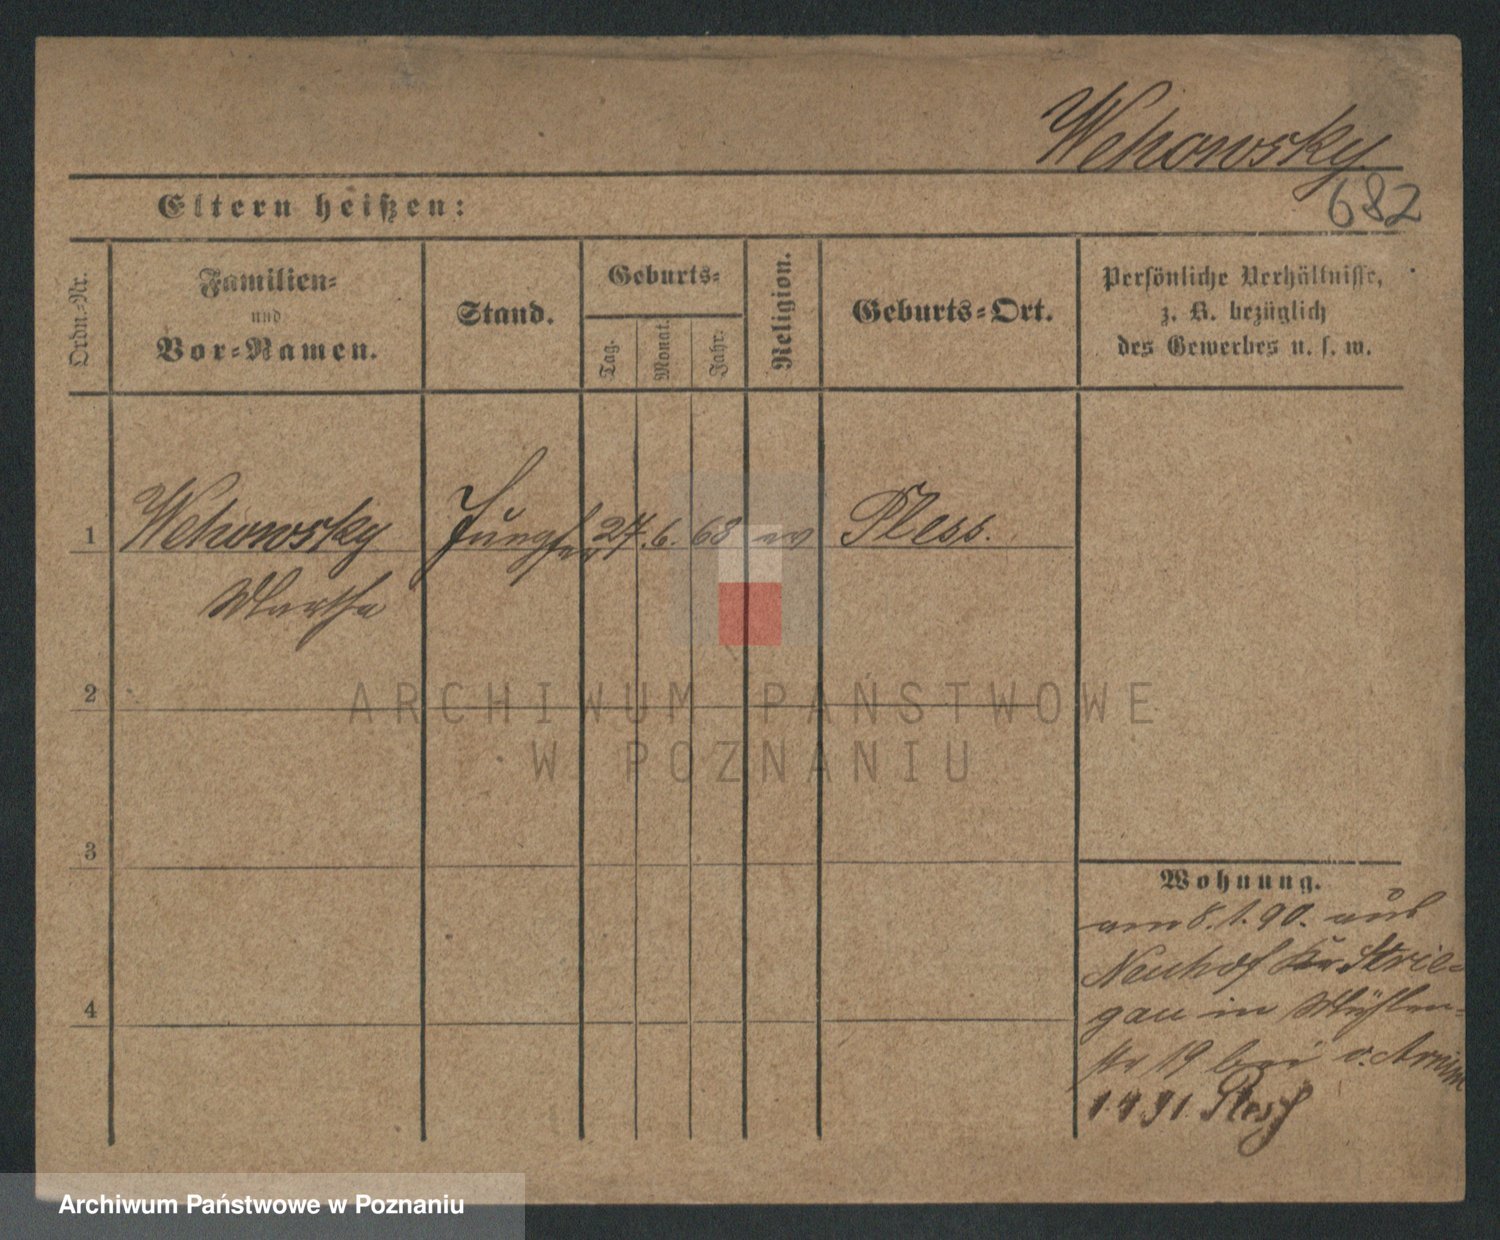 Wehowsky
682
Eltern heißen:
Ordn.-Nr.
Familien-
und
Vor-Namen.
Stand.
Geburts-
Tag.
Monat.
Jahr.
Religion.
Geburts-Ort.
Persönliche Verhältnisse,
z. B. bezüglich
des Gewerbes u. s. w.
1 Wehowsky Jungfer 27. 6. 68 ev Pless.
Martha
2
3
4
Wohnung.
am 8. 1. 90. aus
Neuhof Kr. Strie-
gau in Mühlen-
str 19 bei v. Arnim
1.4 91. Pless
ARCHIWUM PAŃSTWOWE
W POZNANIU
Archiwum Państwowe w Poznaniu